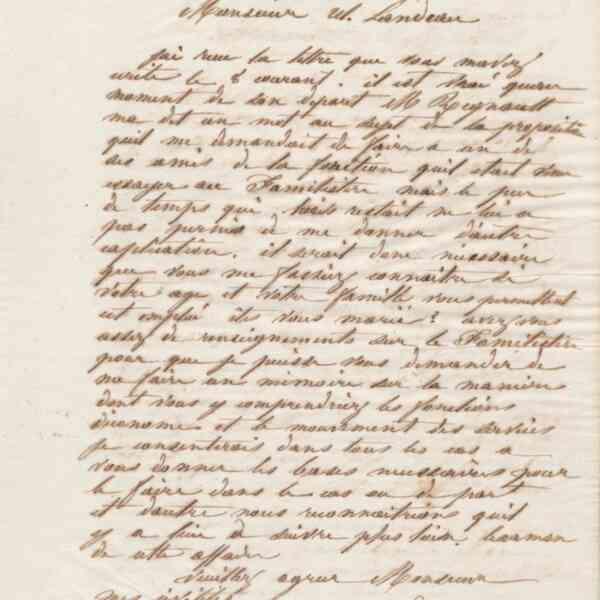 Monsieur W. Landeau
jai recu la lettre que vous mavez
ecrite le 8 courant. il est vrai quau
moment de son depart Mr Regnault
ma dit un mot au sujet de la proposition
quil me demandait de faire a un de
ses amis de la fonction quil etait venu
essayer au Familistère mais le peu
de temps qui lui restait ne lui a
pas permis de me donner dautre
explication. il serait donc necessaire
que vous me fassiez connaitre si
votre age et votre famille vous permettent
cet emploi êtes vous marié ? avez vous
assez de renseignements sur le Familistère
pour que je puisse vous demander de
me faire un mémoire sur la maniere
dont vous y comprendriez les fonctions
déconome et le mouvement des services
je consentirais dans tous les cas a
vous donner les bases necessaires pour
le faire dans le cas ou de part
et dautre nous reconnaitrions quil
y a lieu de suivre plus loin lexamen
de cette affaire
Veuillez agreer Monsieur
mes civilités